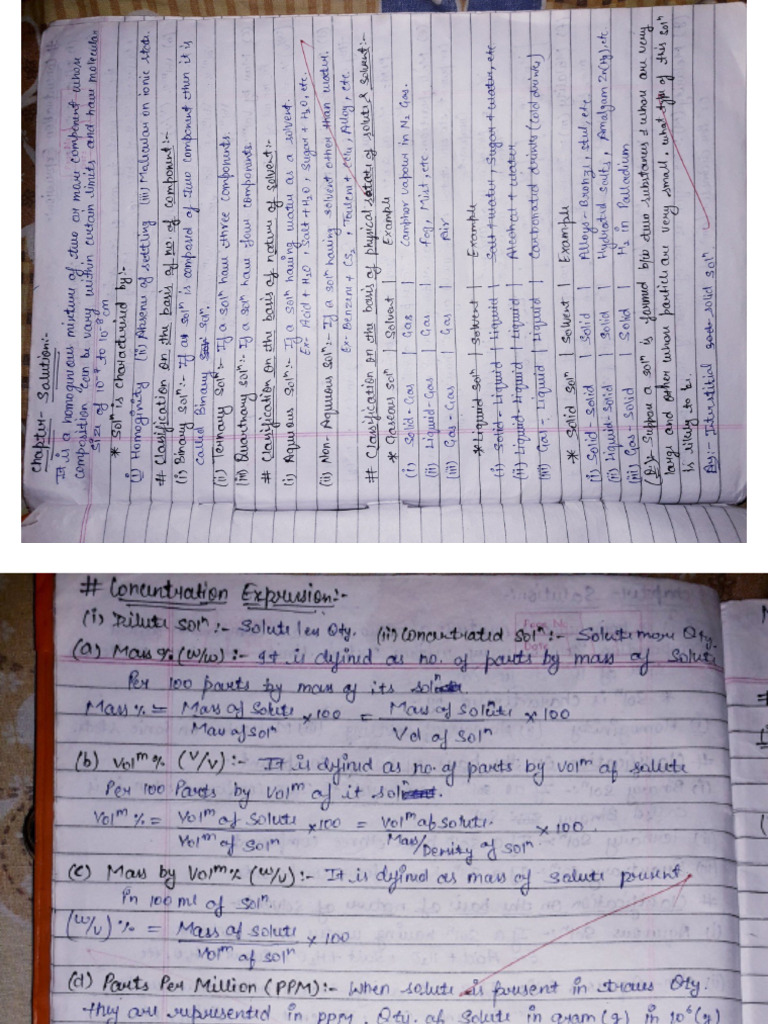 Chapter- Solution:-
It is a homogenious mixture of two or more component whose
composition can be vary within certain limits and have molecular
size of 10⁻⁷ to 10⁻⁸ cm
* Solⁿ is characterised by:-
(i) Homoginity (ii) Absense of settling (iii) Molecular on ionic state.
# Classification on the basis of no. of component:-
(i) Binary Solⁿ:- If as solⁿ is composed of two component then it is
called Binary Solⁿ.
(ii) Ternary Solⁿ:- If a solⁿ have three components.
(iii) Quarternary solⁿ:- If a solⁿ have four components.
# Classification on the basis of nature of solvent:-
(i) Aqueous Solⁿ:- If a solⁿ having water as a solvent.
Ex- Acid + H₂O, Salt + H₂O, Sugar + H₂O, etc.
(ii) Non-Aqueous Solⁿ:- If a solⁿ having solvent other than water.
Ex- Benzene + CS₂, Toluene + CCl₄, Alloy, etc.
# Classification on the basis of physical states of solute & solvent:-
* Gaseous solⁿ | Solvent | Example
(i) Solid-Gas | Gas | Camphor vapour in N₂ Gas.
(ii) Liquid-Gas | Gas | Fog, Mist, etc
(iii) Gas-Gas | Gas | Air
* Liquid Solⁿ | Solvent | Example
(i) Solid-Liquid | Liquid | Salt + water, Sugar + water, etc
(ii) Liquid-Liquid | Liquid | Alcohol + water
(iii) Gas-Liquid | Liquid | Carbonated drinks (cold drinks)
* Solid Solⁿ | Solvent | Example
(i) Solid-Solid | Solid | Alloys-Bronze, Steel, etc.
(ii) Liquid-Solid | Solid | Hydrated Salts, Amalgam Zn(Hg), etc
(iii) Gas-Solid | Solid | H₂ in Palladium
(Q:-) Suppose a solⁿ is formed b/w two substances & whose are very
large and other whose particle are very small, what type of this solⁿ
is likely to be.
Ans:- Interstitial solid solⁿ
# Concentration Expression:-
(i) Dilute Solⁿ:- Solute less Qty. (ii) Concentrated Solⁿ:- Solute more Qty.
(a) Mass % (w/w) :- It is defined as no. of parts by mass of Solute
Per 100 parts by mass of its solⁿ
Mass % = Mass of Solute / Mass of Solⁿ ×100 = Mass of Solute / Vol of Solⁿ ×100
(b) Volᵐ % (V/V) :- It is defined as no. of parts by volᵐ of solute
Per 100 Parts by volᵐ of it solⁿ.
Volᵐ % = Volᵐ of Solute / Volᵐ of Solⁿ ×100 = Volᵐ of Solute. / Mass/Density of Solⁿ ×100.
(c) Mass by Volᵐ % (w/v) :- It is defined as mass of solute present
in 100 ml of Solⁿ.
(w/v) % = Mass of Solute / Volᵐ of Solⁿ ×100
(d) Parts Per Million (PPM) :- When solute is present in traces Qty.
they are represented in PPM. Qty. of Solute in gram (g) in 10⁶ (g)